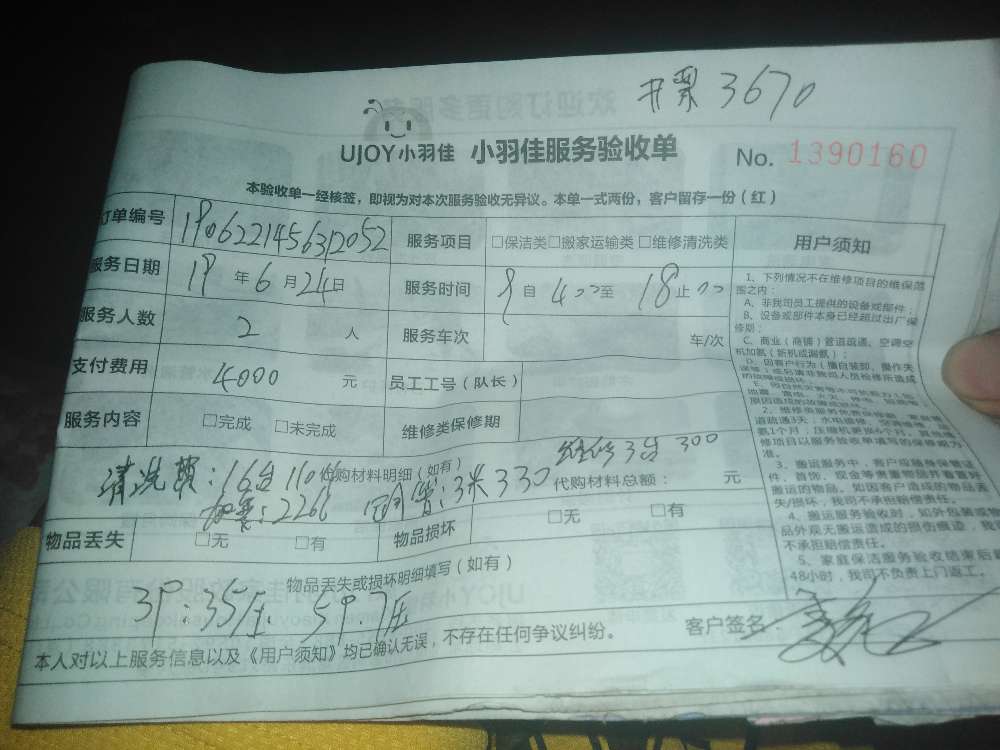 开票 3670
UJOY小羽佳 小羽佳服务验收单 No. 1390160
本验收单一经核签，即视为对本次服务验收无异议。本单一式两份，客户留存一份（红）
订单编号 1906221456312052 服务项目 □保洁类□搬家运输类 □维修清洗类
服务日期 19 年 6 月 24 日 服务时间 9 自 4 00 至 18 止 00
服务人数 2 人 服务车次 车/次
支付费用 4000 元 员工工号（队长）
服务内容 □完成 □未完成 维修类保修期
代购材料明细（如有） 代购材料总额： 元
清洗 16台 1104 维修3台 300
2266 3米330
物品丢失 □无 □有 物品损坏 □无 □有
物品丢失或损坏明细填写（如有）
3P:35压 5P.7压
本人对以上服务信息以及《用户须知》均已确认无误，不存在任何争议纠纷。 客户签名：
用户须知
1、下列情况不在维修项目的维保范
围之内：
A、非我司员工提供的设备或部件；
B、设备或部件本身已经超过出厂保
修期；
C、商业（商铺）管道疏通、空调空
机加氨（新机或漏氨）；
D、因客户行为（擅自装卸、操作失
2、维修类服务
道疏通3天；水电维修
氨1个月；压缩机更换6个月。其他维
修项目以服务验收单填写的保修期为
准。
3、搬运服务中，客户应随身保管证
件、首饰、现金等贵重物品并看管好
搬运的物品。如因客户造成的物品丢
失/损坏，我司不承担赔偿责任。
4、搬运服务验收时，如外包装或物
品外观无搬运造成的损伤痕迹，我司
不承担赔偿责任。
5、家庭保洁服务验收结束后
48小时，我司不负责上门返工。